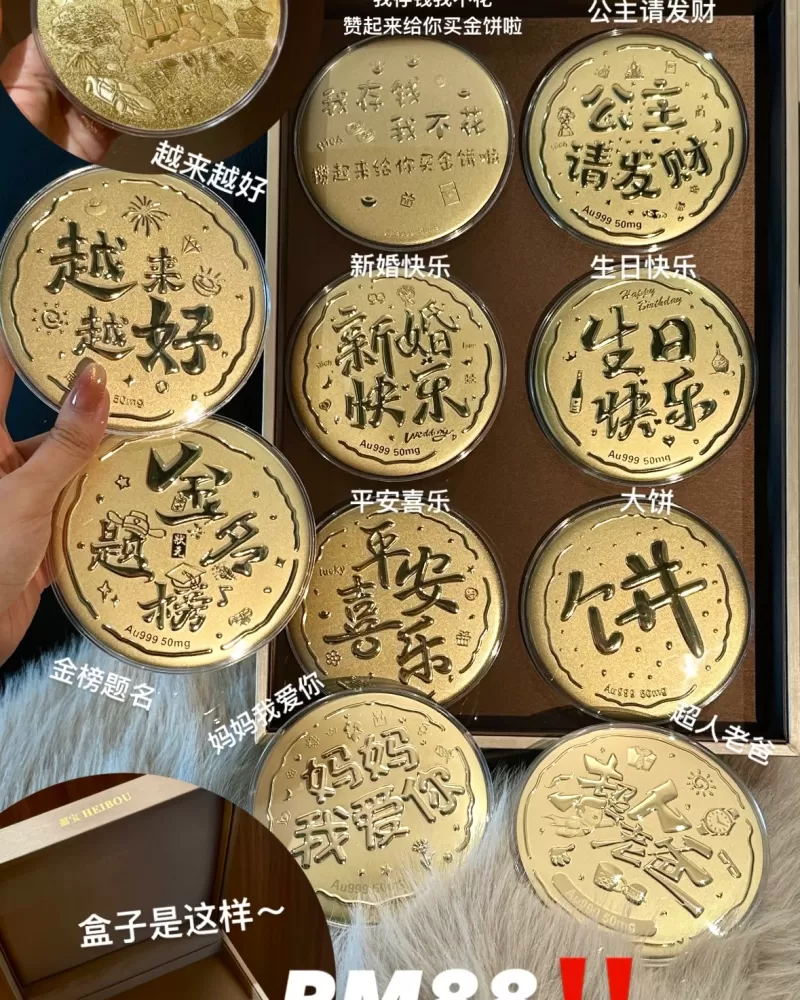 我存钱我不花
赞起来给你买金饼啦
公主请发财
我存钱
我不花
攒起来给你买金饼啦
公主
请发财
Au999 50mg
越来越好
越来
越好
50mg
新婚快乐
新婚
快乐
Wedding
Au999 50mg
生日快乐
Happy
Birthday
生日
快乐
Au999 50mg
金名
题榜
状元
Au999 50mg
金榜题名
平安喜乐
lucky
平安
喜乐
大饼
饼
Au999 50mg
妈妈我爱你
妈妈
我爱你
Au999 50mg
超人老爸
超人
老爸
Au999 50mg
HEIBOU
盒子是这样～
RM88!!